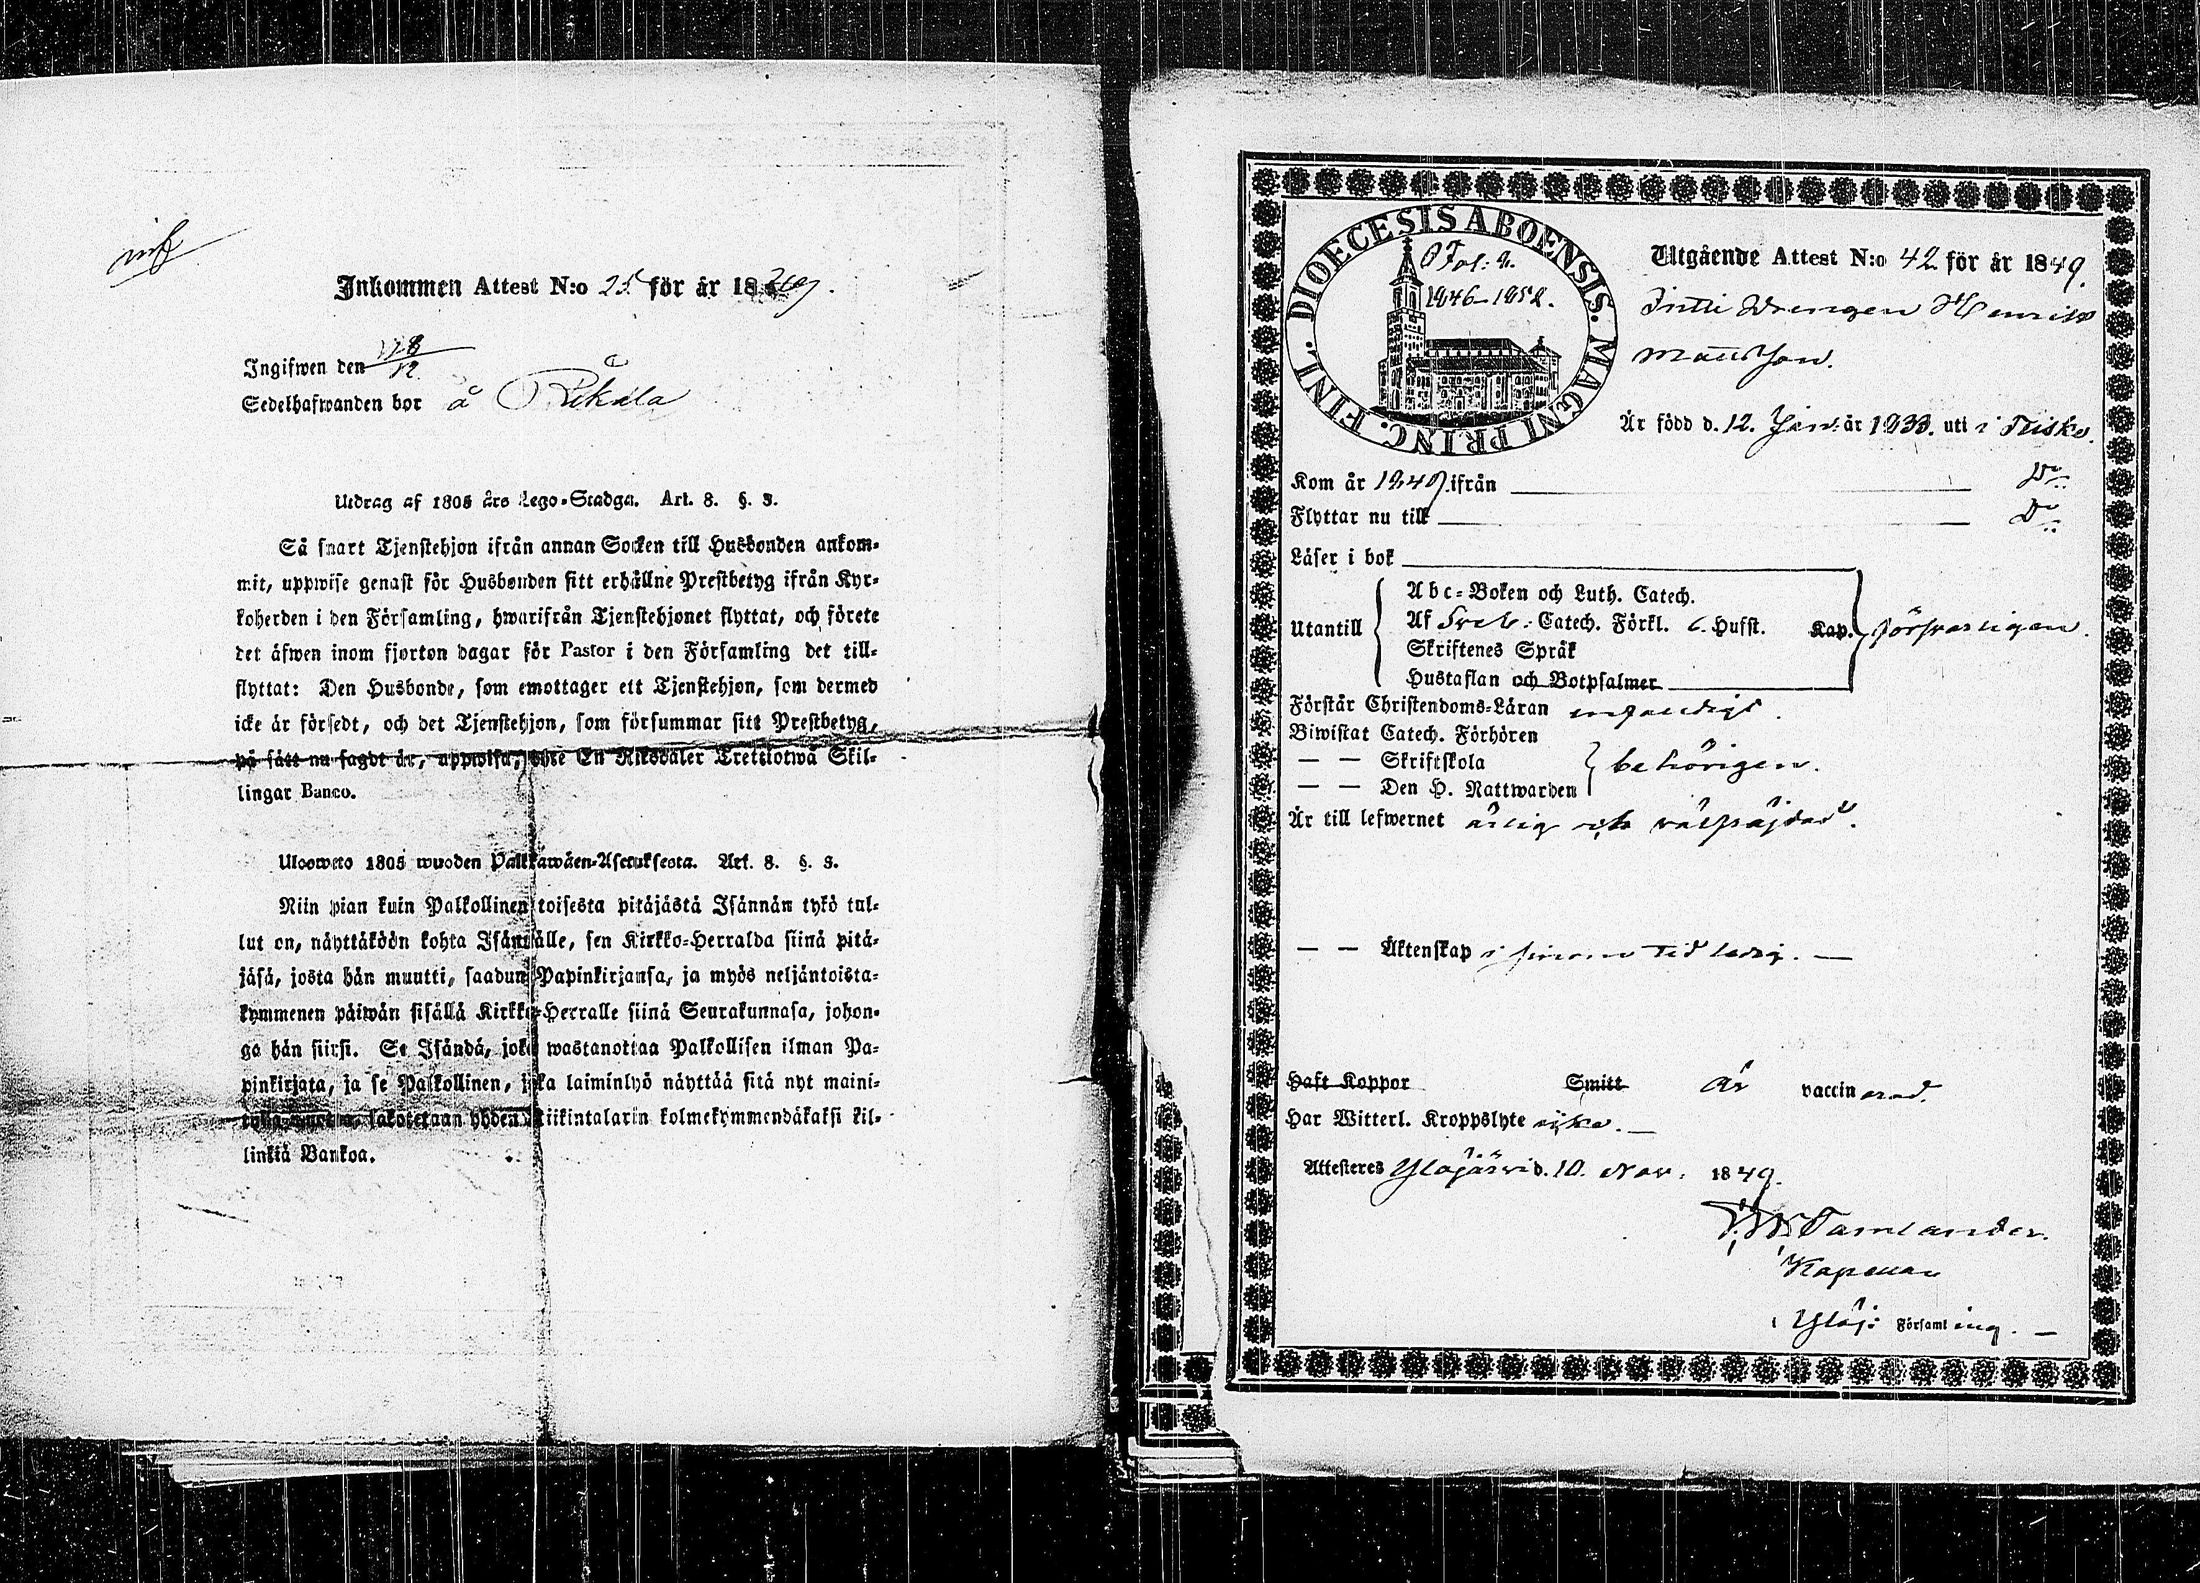 Inkommen Attest N:o 25 för år 1849.
Ingifwen den
Sedelhafwanden bor å
Utdrag af 1805 års Lego-Stadga. Art. 8. §. 3.
Så snart Tjenstehjon ifrån annan Socken till Husbonden ankom-
mit, uppwise genast för Husbonden sitt erhållne Prestbetyg ifrån Kyr-
koherden i den Församling, hwarifrån Tjenstehjonet flyttat, och förete
det äfwen inom fjorton dagar för Pastor i den Församling det till-
flyttat: Den Husbonde, som emottager ett Tjenstehjon, som dermed
icke är försedt, och det Tjenstehjon, som försummar sitt Prestbetyg,
på sätt nu sagdt är, uppwisa, böte En Riksdaler Trettiotwå Skil-
lingar Banco.
Ulosweto 1805 wuoden Palkkawäen-Asetuksesta. Art. 8. §. 3.
Niin pian kuin Palkollinen toisesta pitäjästä Isännän tykö tul-
lut on, näyttäköön kohta Isännälle, sen Kirkko-Herralda siinä pitä-
jäsä, josta hän muutti, saadun Papinkirjansa, ja myös neljäntoista-
kymmenen päiwän sisällä Kirkko-Herralle siinä Seurakunnasa, johon-
ga hän siirsi. Se Isändä, joka wastanottaa Palkollisen ilman Pa-
pinkirjata, ja se Palkollinen, joka laiminlyö näyttää sitä nyt maini-
sakotetaan yhden Riikintalarin kolmekymmendäkaksi kil-
linkiä Bankoa.
DIOECESIS ABOENSIS. MAGNI PRINC. FINL.
Fol: 2.
1846-1852.
Utgående Attest N:o 42 för år 1849.
Drengen Henrik
Mattsson.
Är född d. 12. Jan. år 1833. uti i Teisko.
Kom år 1849. ifrån Do
Flyttar nu till Do
Läser i bok
Utantill
Abc-Boken och Luth. Catech.
Af Sveb: Catech. Förkl. c. Husst. Kap.
Skriftenes Språk
Hustaflan och Botpsalmer
försvarligen.
Förstår Christendoms-Läran
Biwistat Catech. Förhören
— — Skriftskola
— — Den H. Nattwarden
behörigen.
Är till lefwernet ärlig och välfräjdad.
— — Äktenskap i sinom tid ledig. —
Haft Koppor Smitt Är vaccinerad.
Har Witterl. Kroppslyte icke. —
Attesteres Ylöjärvi d. 10. Nov. 1849.
Tamlander.
Kapellan
i Ylöj: Församling. —